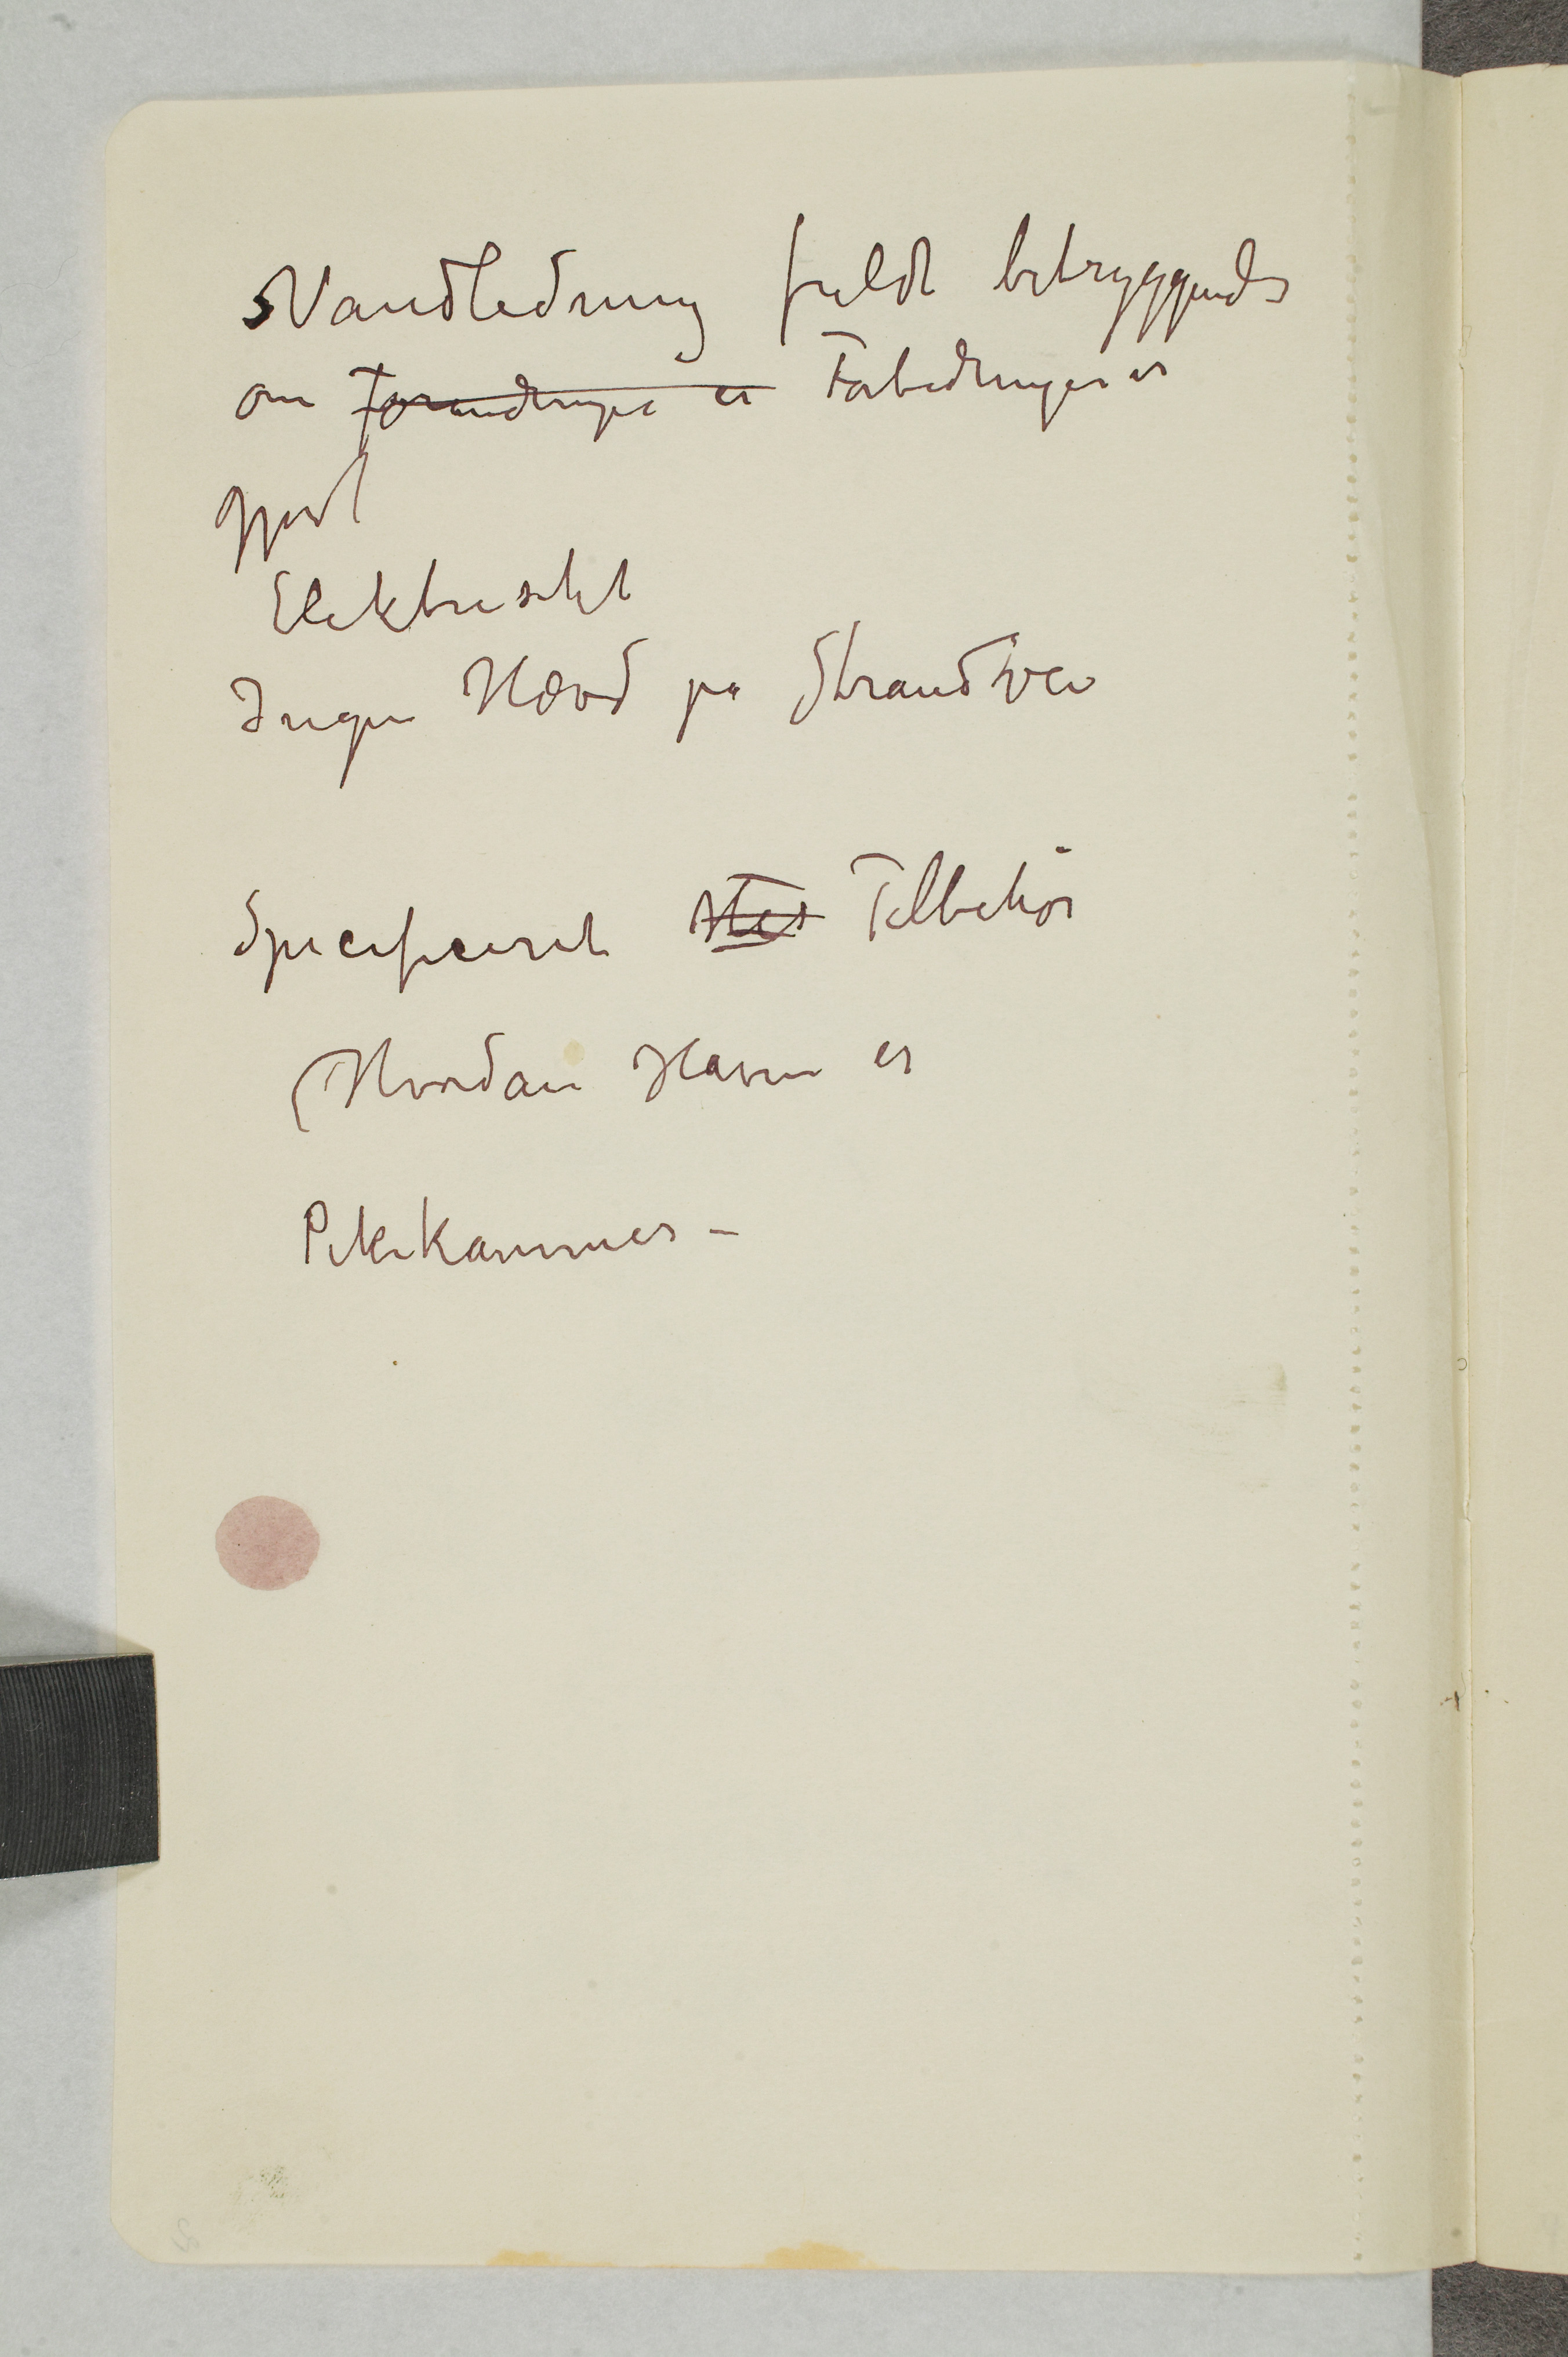 Vandledning fuldt betryggende
om Forandringer er Forbedringer er
gjort
Elektriskt
Ingen Hævd på Strandvei
Specificeret Tilbehör
(Hvordan Haven er
Pikekammer –